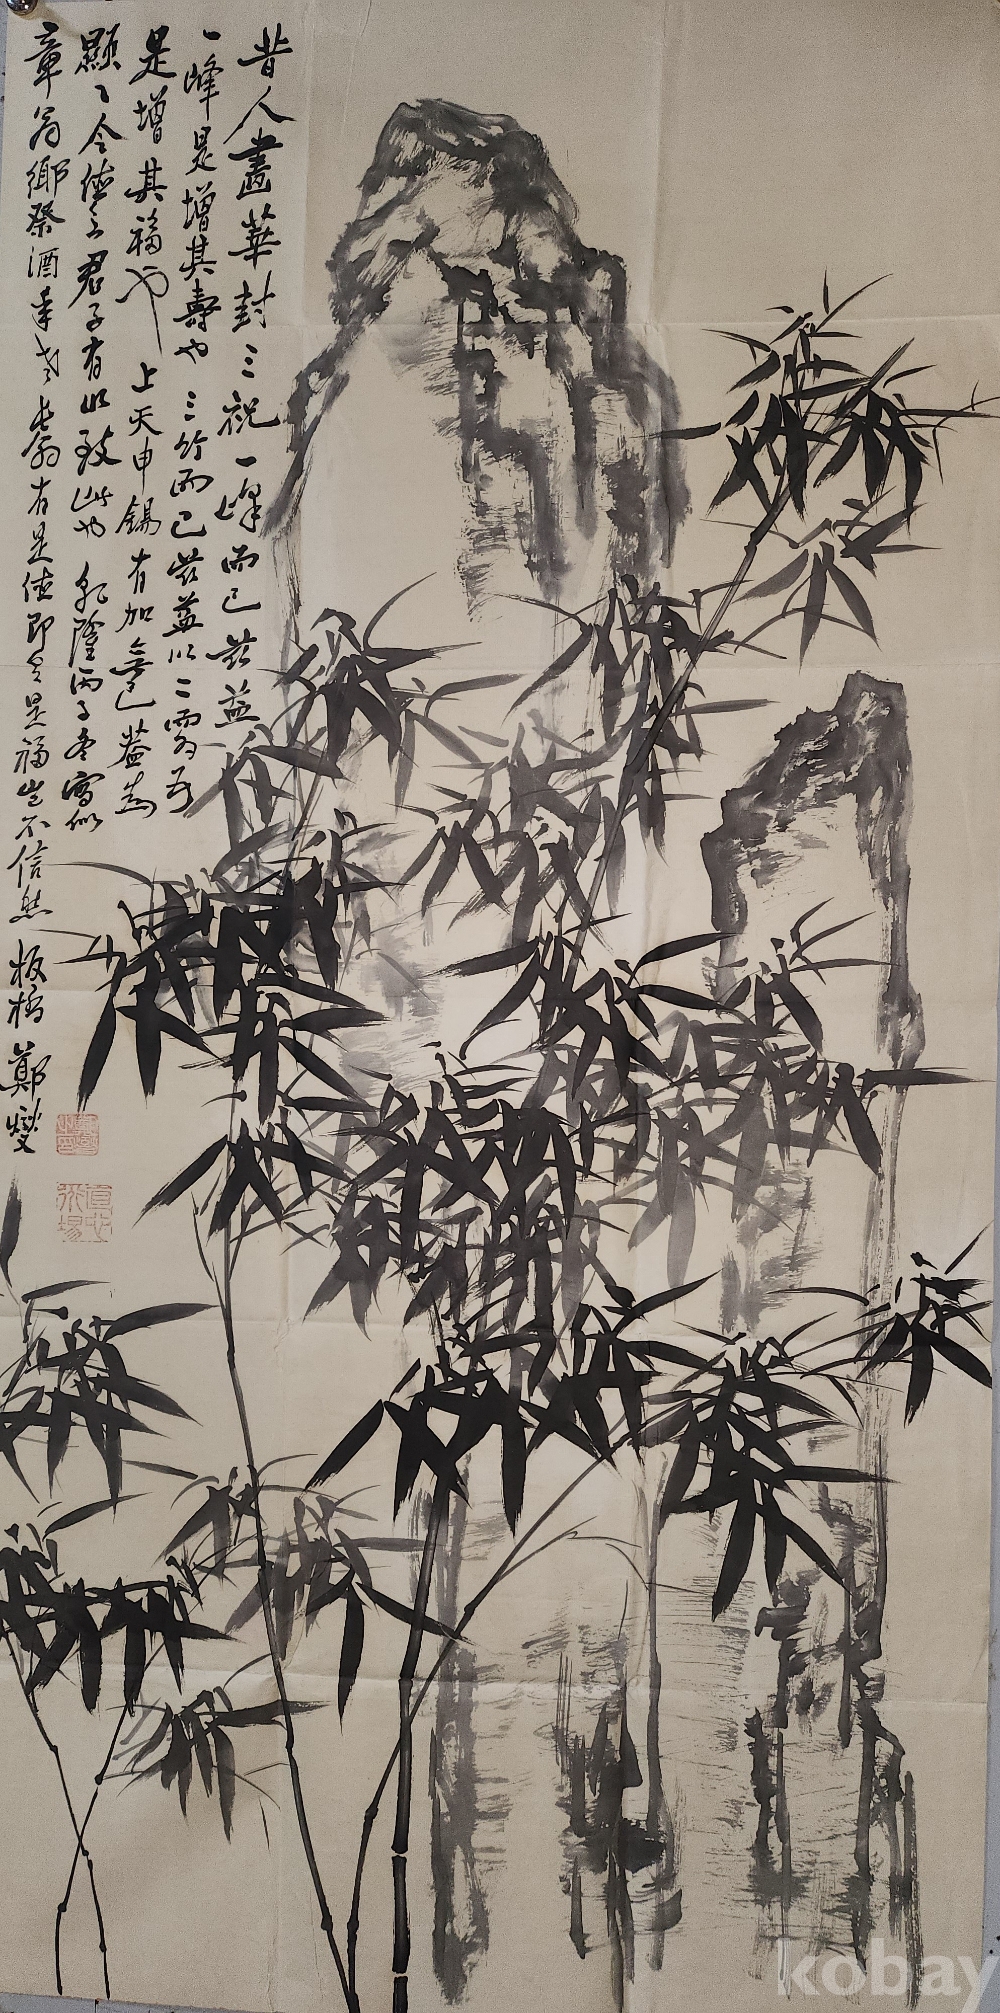 昔人畫華封三祝一峰而已茲益
一峰是增其壽也三竹而已茲益以二兩
是增其福也上天申錫有加無已蓋為
顯令德之君子有以致此也乾隆丙子冬寫似
章翁鄉祭酒年老翁有是德即有是福豈不信然
板橋鄭燮
kobay